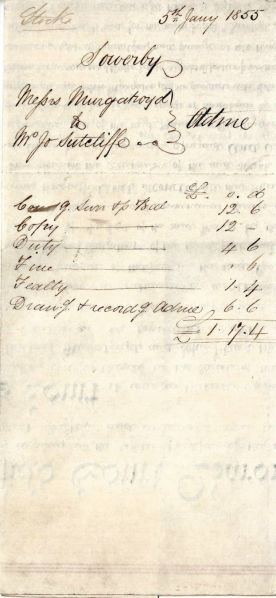 Stock
5th Jany 1855
Sowerby
Messrs Murgatroyd
to
Mr Jo Sutcliffe
Adme
£. s. d
g Surr & Bal 12. 6
Copy 12 -
Duty 4 6
Fine . 6
Fealty 1. 4
Drawg. & recordg. Adme 6. 6
£ 1. 17. 4